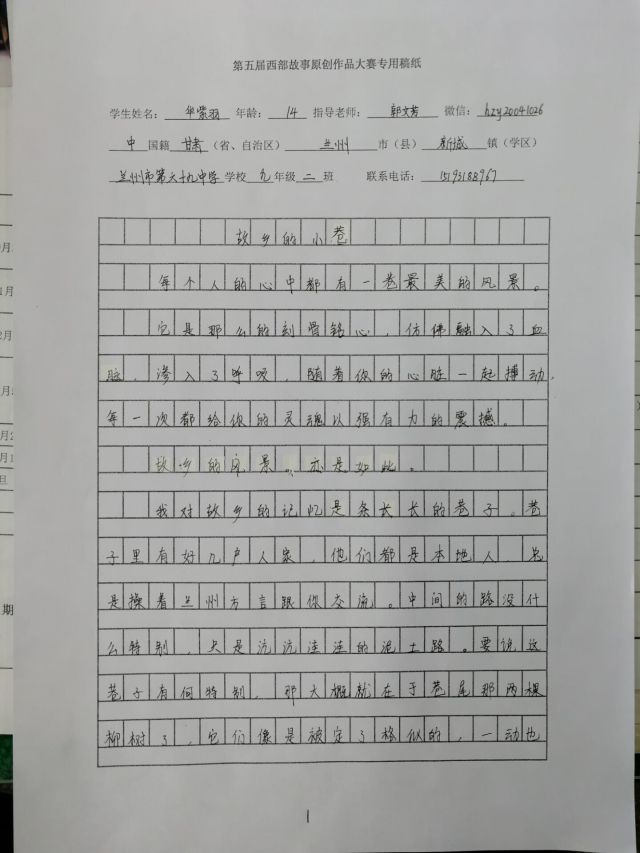 第五届西部故事原创作品大赛专用稿纸
学生姓名：华紫羽 年龄：14 指导老师：郭文芳 微信：hzy20041026
中 国籍 甘肃（省、自治区） 兰州 市（县） 新城 镇（学区）
兰州市第六十九中学 学校 九 年级 二 班 联系电话：15193188967
故乡的小巷
每个人的心中都有一巷最美的风景。
它是那么的刻骨铭心，仿佛融入了血
脉，渗入了呼吸，随着你的心脏一起搏动，
每一次都给你的灵魂以强有力的震撼。
故乡的风景，亦是如此。
我对故乡的记忆是条长长的巷子。巷
子里有好几户人家，他们都是本地人，总
是操着兰州方言跟你交流。中间的路没什
么特别，只是沆沆洼洼的混土路。要说这
巷子有何特别，那大概就在于巷尾那两棵
柳树了，它们像是被定了格似的，一动也
1